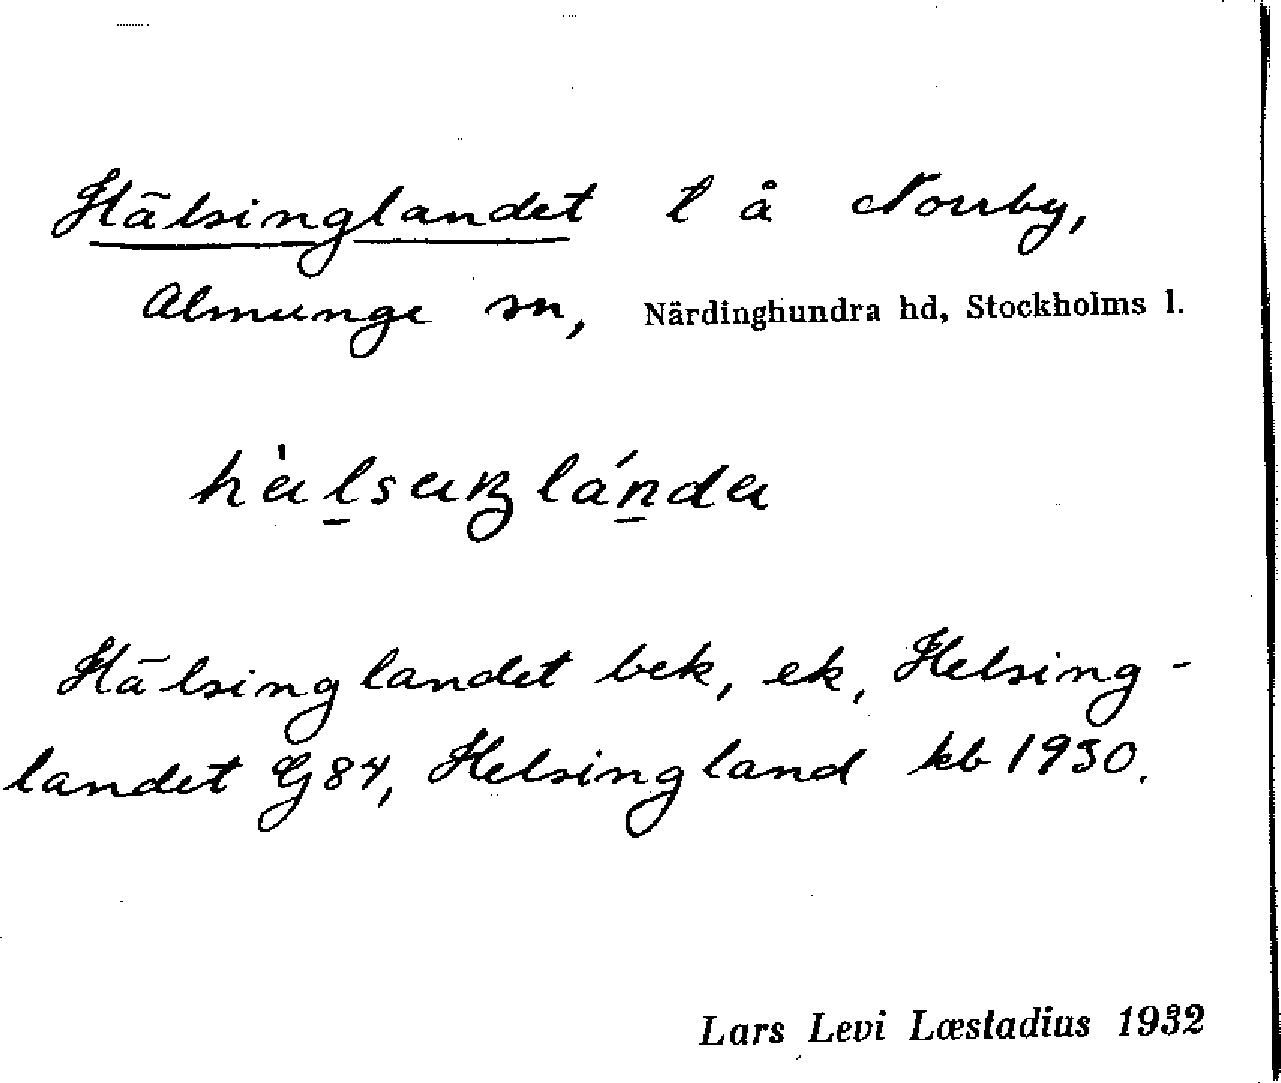 Hälsinglandet l å Norrby,
Almunge sn, Närdinghundra hd, Stockholms l.
Hälsinglandet bek, ek, Helsing-
landet G84, Helsingland kb 1930.
Lars Levi Læstadius 1932